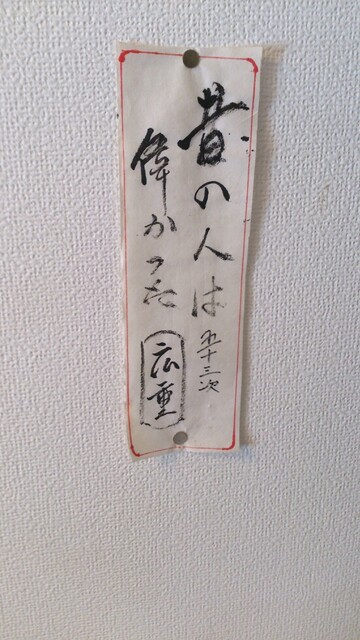 昔の人は
五十三次
偉かった
広重